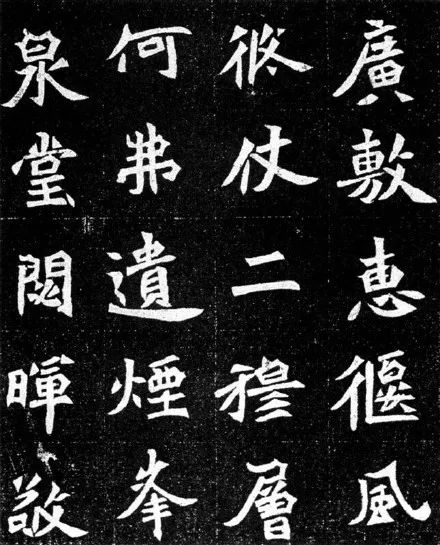 廣敷恵偃風
修仗二穆層
何弗遺煙峯
泉堂暉敬